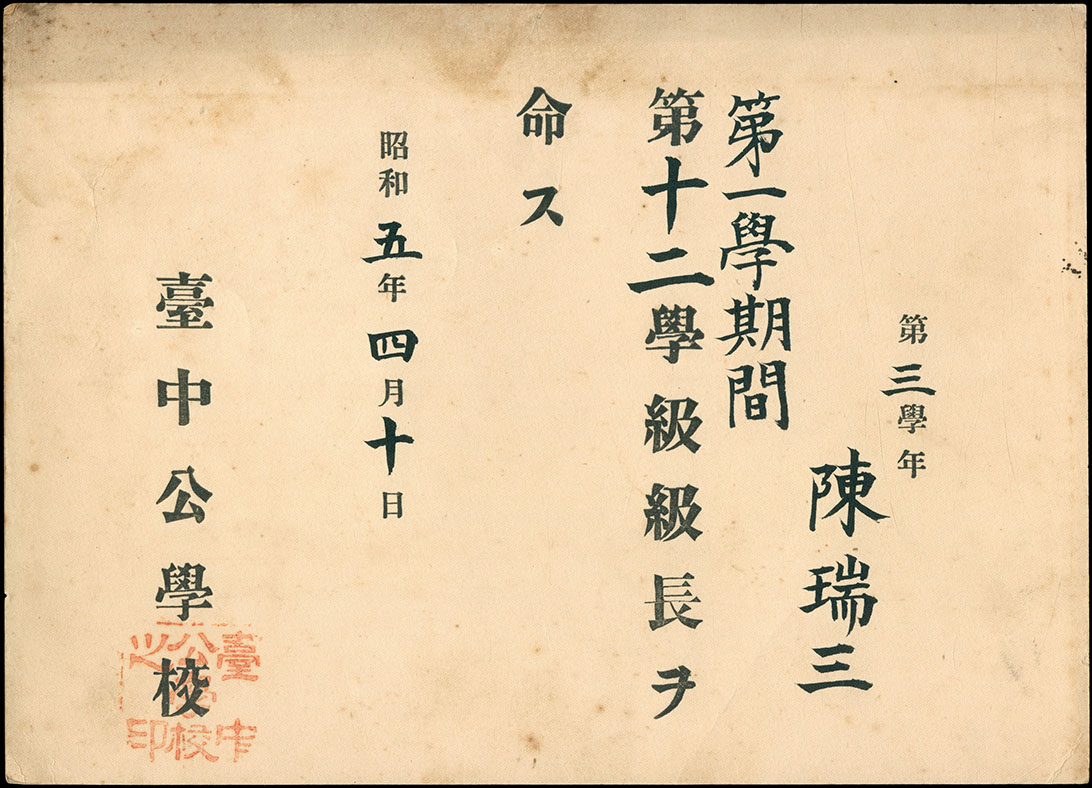 第三學年
陳瑞三
第一學期間
第十二學級級長ヲ
命ス
昭和五年四月十日
臺中公學校
臺中
公學校
之印